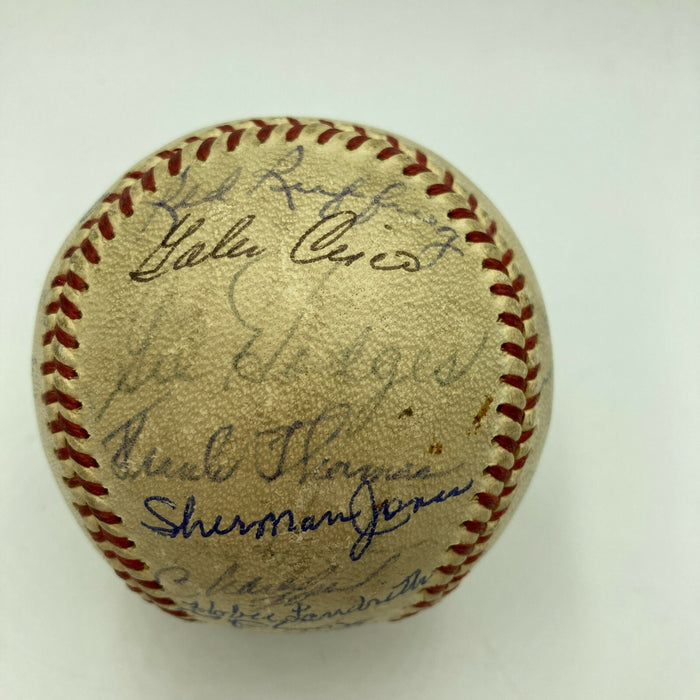 Red Ruffing
Galen Cisco
Gil Hodges
Frank Thomas
Sherman Jones
Hobie Landrith